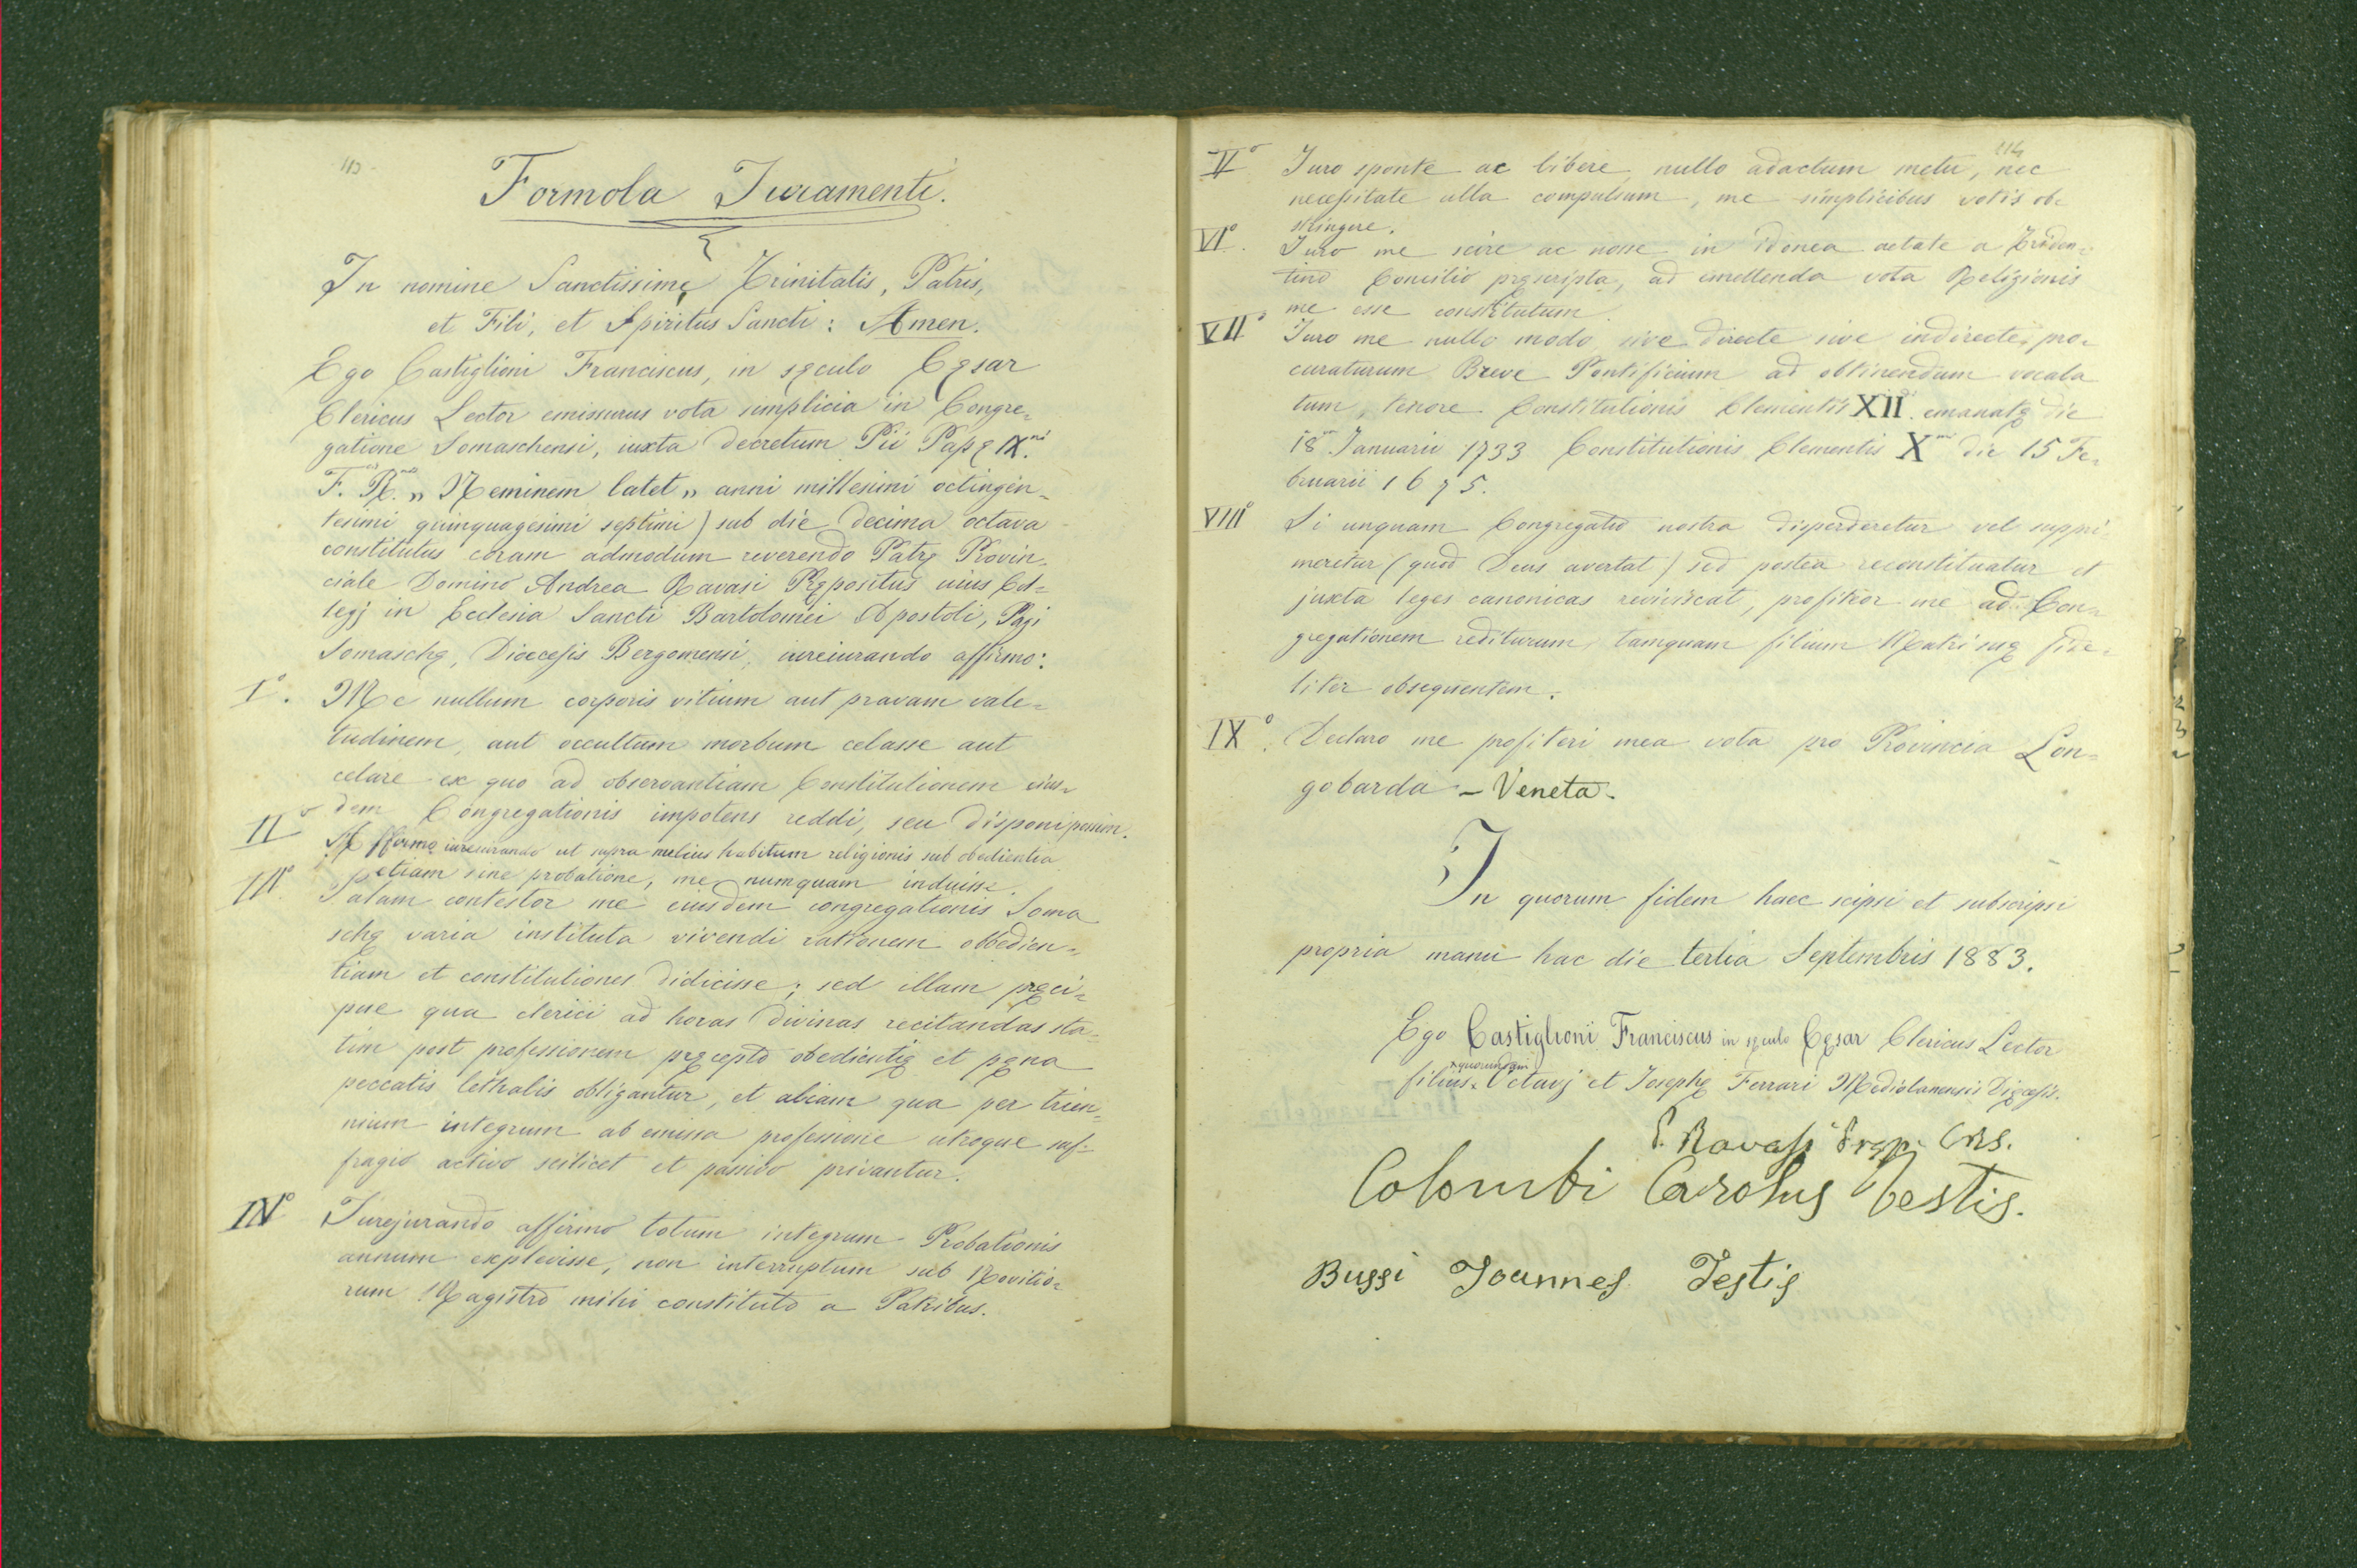 113
Formola Juramenti.
In nomine Sanctissimę Trinitatis, Patris,
et Fili, et Spiritus Sancti: Amen.
Ego Castiglioni Franciscus, in sęculo Cęsar
Clericus Lector emissurus vota simplicia in Congre=
gatione Somaschensi, iuxta decretum Pii Papę IX.ni
F. R. „ Neminem latet „ anni millesimi octingin=
tesimi quinquagesimi septimi) sub die decima octava
constitutus coram admodum reverendo Patrę Provin=
ciale Domino Andrea Ravasi Prępositus uius Col=
legj in Ecclesia Sancti Bartolomei Apostoli, Pagi
Somaschę, Dioecesis Bergomensi, iureiurando affirmo:
I°. Me nullum corporis vitium aut pravam vale=
tudinem, aut occultum morbum celasse aut
celare ex quo ad observantiam Constitutionem eius=
dem Congregationis impotens reddi, seu disponi possim.
II° Affirmo iureiurando ut supra melius habitum religionis sub obedientia
etiam sine probatione, me numquam induisse.
III° Palam contestor me eiusdem congregationis Soma
schę varia instituta vivendi rationem obbedien=
tiam et constitutiones didicisse; sed illam pręci=
pue qua clerici ad horas divinas recitandas sta=
tim post professionem pręcepto obedientię et pęna
peccatis lethalis obligantur, et aliam qua per trien=
nium integrum ab emissa professione utroque suf=
fragio activo scilicet et passivo privantur.
IV° Jurejurando affirmo totum integrum Probationis
annum explevisse, non interruptum sub Novitio=
rum Magistro mihi constituto a Patribus.
114
V° Juro sponte ac libere, nullo adactum metu, nec
necessitate ulla compulsum, me simplicibus votis ob=
stringere.
VI°. Juro me scire ac nosse in idonea aetate a Triden=
tino Concilio pręscripta, ad emettenda vota Religionis
me esse constitutum.
VII° Juro me nullo modo sive directe sive indirecte, pro=
curaturum Breve Pontificium ad obtinendum vocala
tum, tenore Constitutionis Clementis XII. emanatę die
18 Januarii 1733 Constitutionis Clementis X die 15 Fe=
bruarii 1675.
VIII° Si unquam Congregatio nostra disperderetur vel suppri=
meretur (quod Deus avertat) sed postea reconstituatur et
juxta leges canonicas reviviscat, profiteor me ad Con=
gregationem rediturum, tamquam filium Matri suę fide=
liter obsequentem.
IX°. Declaro me profiteri mea vota pro Provincia Lon=
gobarda - Veneta.
In quorum fidem haec scipsi et subscripsi
propria manu hac die tertia Septembris 1883.
Ego Castiglioni Franciscus in sęculo Cęsar Clericus Lector
quorundam
filius Octavj et Josephę Ferrari Mediolanensis Dięcesis.
P. Ravasi Prep. CRS.
Colombi Carolus Testis.
Bussi Joannes Testis